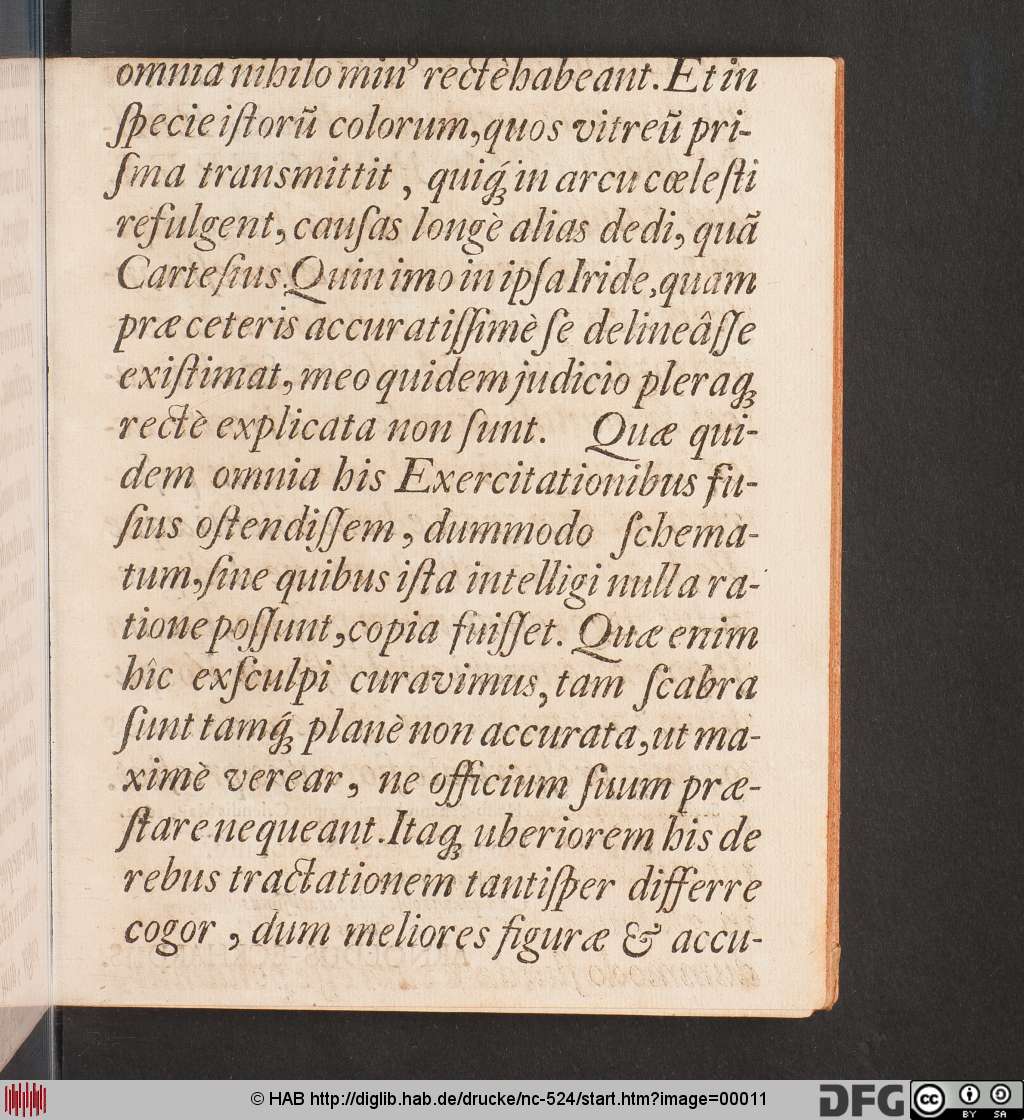 omnia nihilo minꝰ rectè habeant. Et in
ſpecie iſtorũ colorum, quos vitreũ pri-
ſma transmittit, quiq́ꝫ in arcu cœleſti
refulgent, cauſas longè alias dedi, quã
Carteſius. Quin imo in ipſa Iride, quam
præ ceteris accuratiſſimè ſe delineâſſe
exiſtimat, meo quidem judicio pleraqꝫ
rectè explicata non ſunt. Quæ qui-
dem omnia his Exercitationibus fu-
ſius oſtendiſſem, dummodo ſchema-
tum, ſine quibus iſta intelligi nulla ra-
tione poſſunt, copia fuiſſet. Quæ enim
hîc exſculpi curavimus, tam ſcabra
ſunt tamq́ꝫ planè non accurata, ut ma-
ximè verear, ne officium ſuum præ-
ſtare nequeant. Itaqꝫ uberiorem his de
rebus tractationem tantiſper differre
cogor, dum meliores figuræ & accu-
© HAB http://diglib.hab.de/drucke/nc-524/start.htm?image=00011
DFG
cc
BY SA